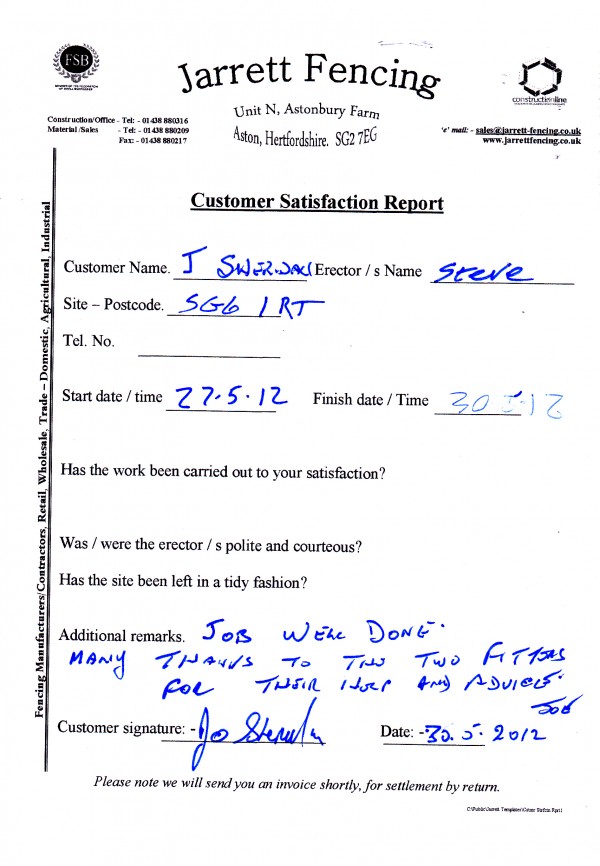 FSB
MEMBER OF THE FEDERATION
OF SMALL BUSINESSES
Jarrett Fencing
Unit N, Astonbury Farm
Aston, Hertfordshire. SG2 7EG
constructionline
Construction/Office - Tel: - 01438 880316
Material /Sales - Tel: - 01438 880209
Fax: - 01438 880217
'e' mail: - sales@jarrett-fencing.co.uk
www.jarrettfencing.co.uk
Customer Satisfaction Report
Fencing Manufacturers/Contractors, Retail, Wholesale, Trade – Domestic, Agricultural, Industrial
Customer Name. J Erector / s Name Steve
Site – Postcode. SG6 1RT
Tel. No.
Start date / time 27.5.12 Finish date / Time 30 5.12
Has the work been carried out to your satisfaction?
Was / were the erector / s polite and courteous?
Has the site been left in a tidy fashion?
Additional remarks. JOB WELL DONE.
MANY THANKS TO THE TWO FITTERS
FOR THEIR HELP AND ADVICE.
Customer signature: - Jo Date: - 30.5.2012
Please note we will send you an invoice shortly, for settlement by return.